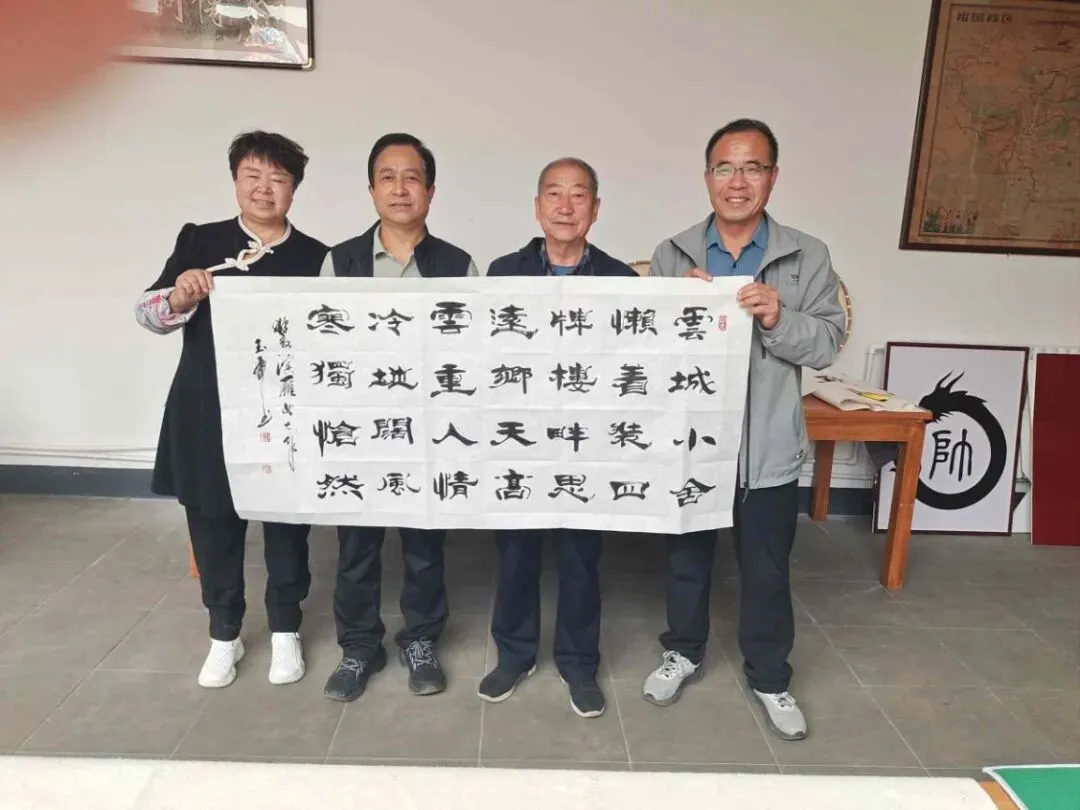 雲城小舍
懶着装四
牌樓畔思
遠鄉天高
雲重人情
冷地闊風
寒獨愴然
帥